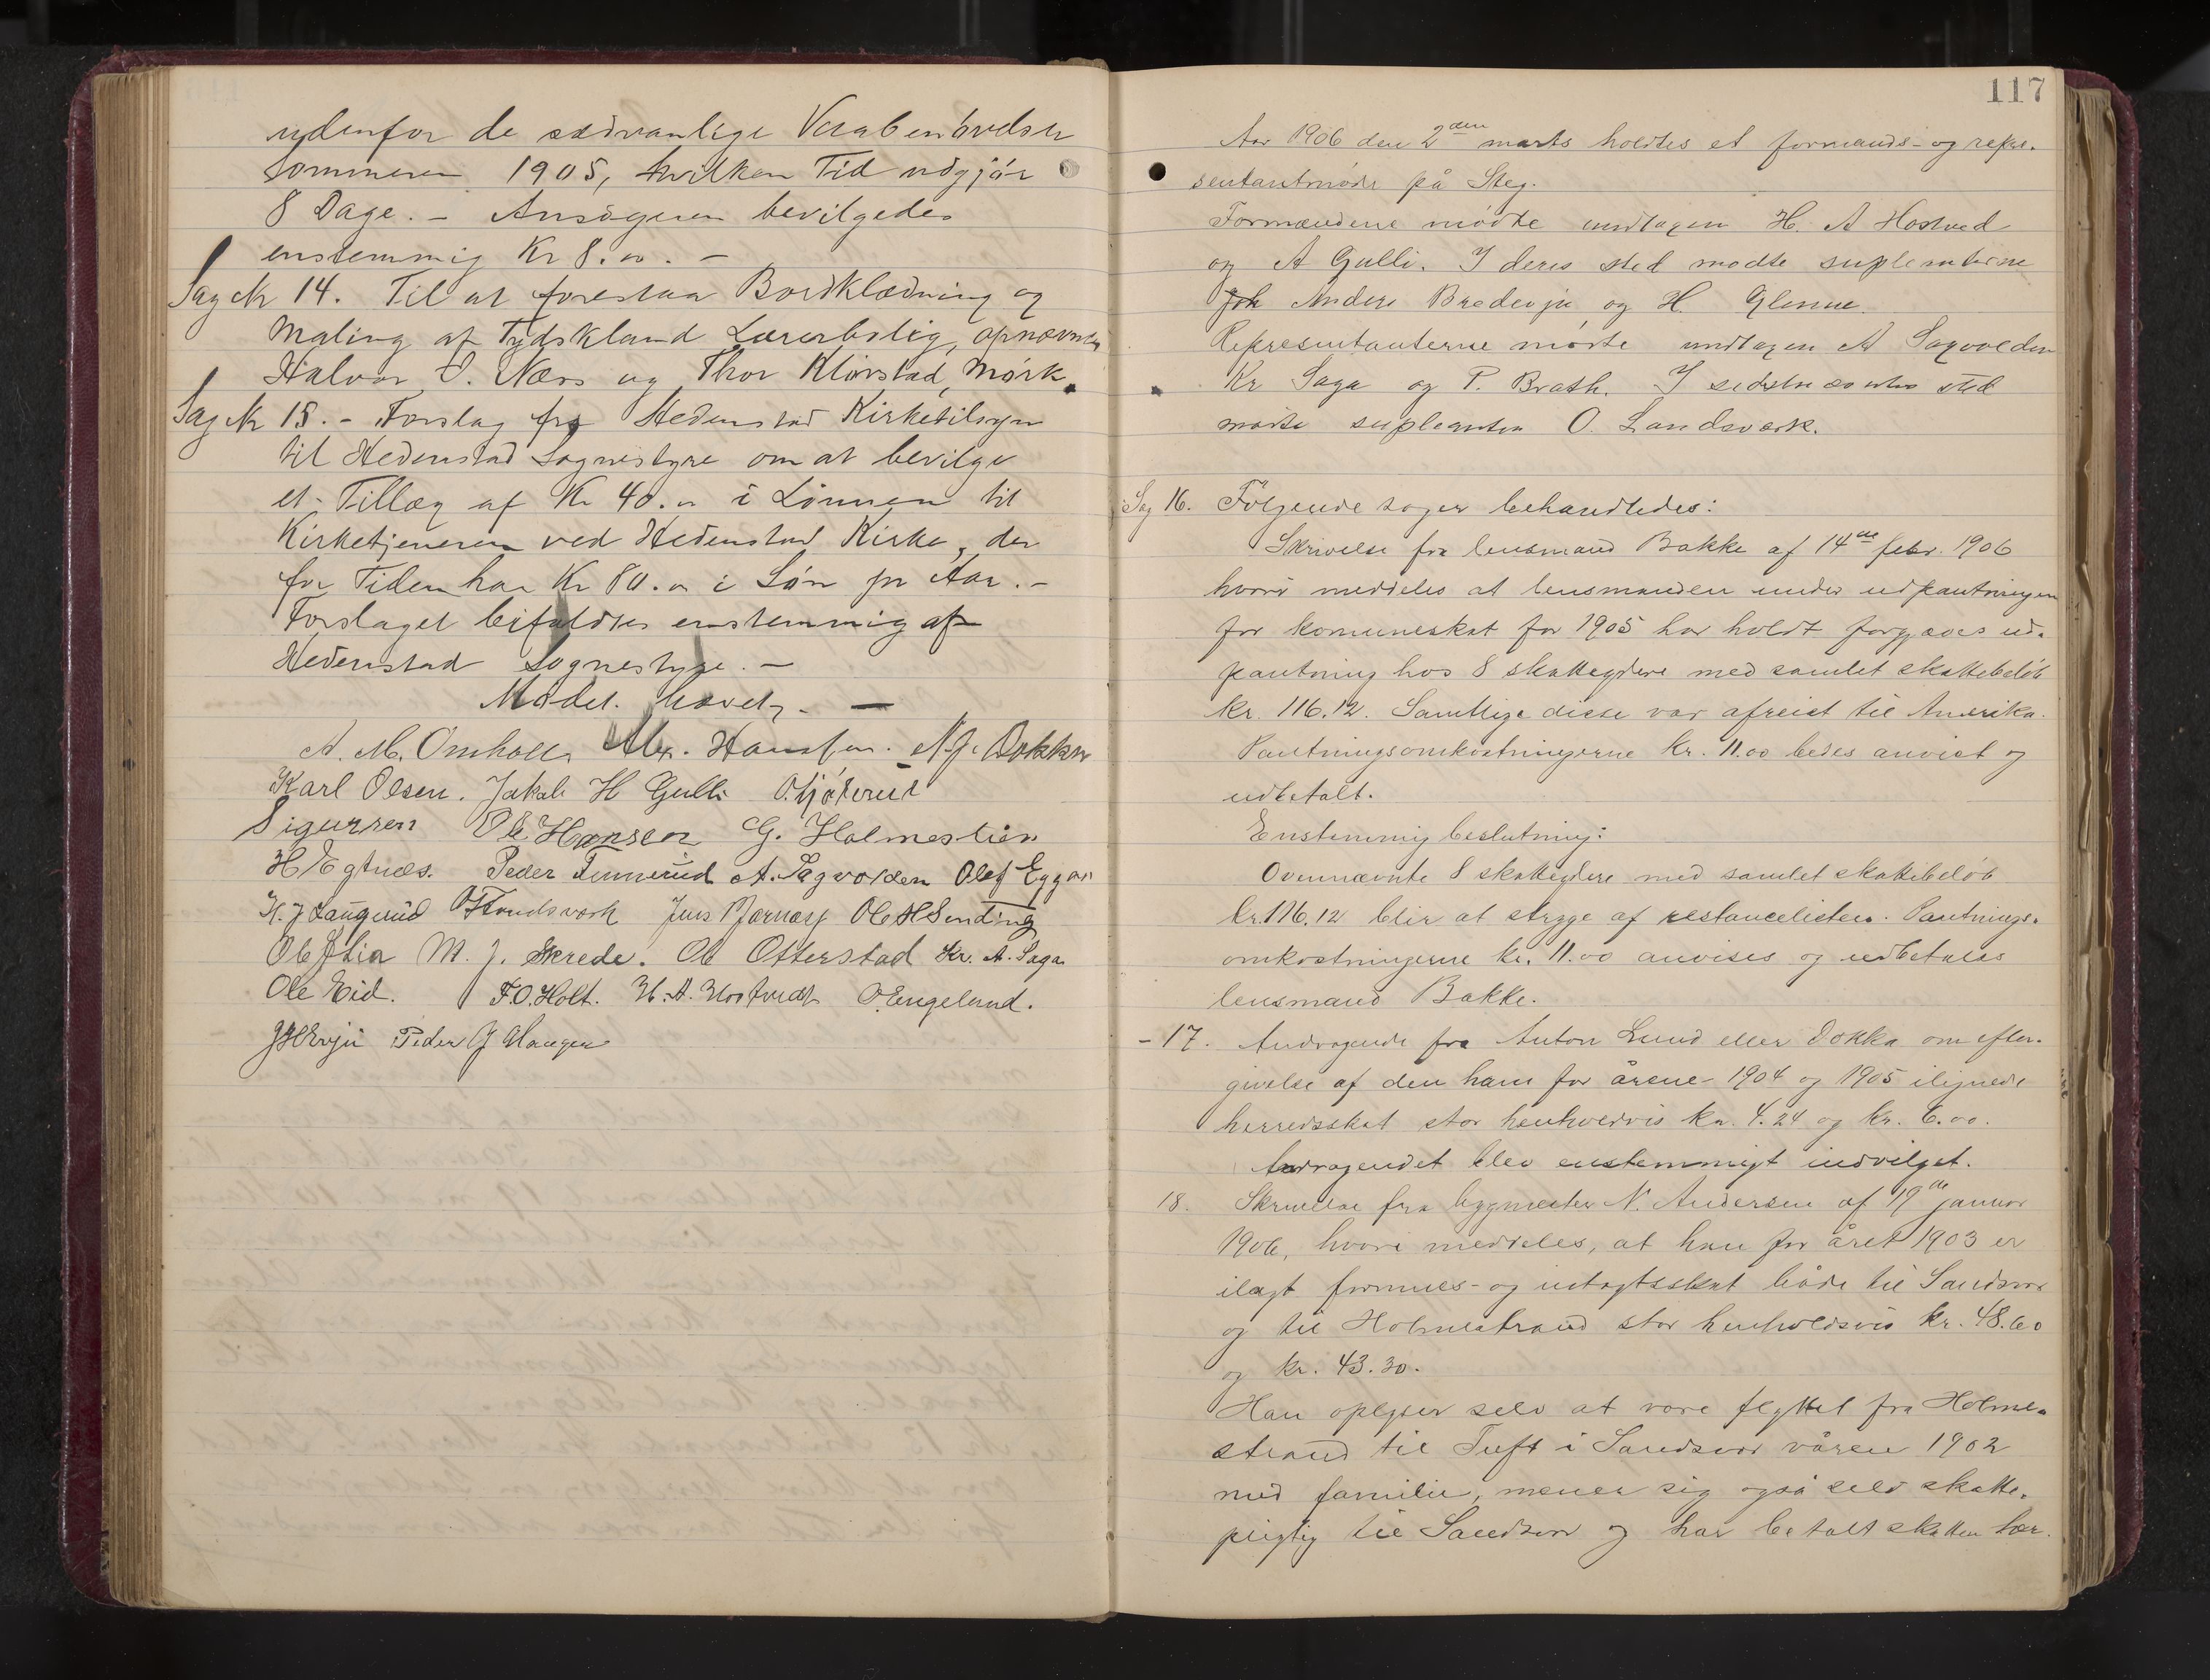 udenfor de sædvanlige Vaabenøvelser
Sommeren 1905, hvilken Tid udgjør
8 Dage. – Ansøgeren bevilgedes
enstemmig Kr 8.00. –
Sag N 14. Til at forestaa Bordklædning og
Maling af Tydskland Lærerbolig, opnævntes
Halvor O. Næss og Thor Klørstad, Mørk.
Sag N 15. – Forslag fra Hedenstad Kirketilsyn
til Hedenstad Sognestyre om at bevilge
et Tillæg af Kr 40.00 i Lønnen til
Kirketjeneren ved Hedenstad Kirke, der
for Tiden har Kr 80.00 i Løn pr Aar. –
Forslaget bifaldtes enstemmig af
Hedenstad Sognestyre. –
Mødet hævet. –
A. M. Omholt Alex. Hansen. N. J. Dokken
Karl Olsen. Jakob H Gulli O. Gjøterud
Sigurdsen Ole Hansen G. Holmestien
H Egtnæs. Peder Temmerud A. Sagvolden Olaf Eggar
H. J Laugerud O Landsværk Jens Bjørnaas Ole H Senting
Ole J Lia M. J. Skrede. Ole Otterstad Kr. A. Saga
Ole Eid. F. O. Holt. H. A. Hostvedt O. Engelund.
Peder J Haugen
117
Aar 1906 den 2den marts holdtes et formands- og repre-
sentantmøde på Steg.
Formændene mødte undtagen H. A Hostved
og A Gulli. I deres sted mødte suplenterne
Anders Bredesju og H. Glenne.
Representanterne møtte undtagen A Sagvolden
Kr Saga og P. Brath. I sidstnævntes sted
møtte supleanten O. Landsværk.
Sag 16. Følgende sager behandledes:
Skrivelse fra lensmand Bakke af 14de febr. 1906
hvori meddeles at lensmanden under udpantningen
for komuneskat for 1905 har holdt forgjæves ud-
pantning hos 8 skatteydere med samlet skattebeløb
kr. 116.12. Samtlige disse var afreist til Amerika.
Pantningsomkostningerne kr. 11.00 bedes anvist og
udbetalt.
Enstemmig beslutning:
Ovennævnte 8 skatteydere med samlet skattebeløb
kr. 116.12 blir at stryge af restancelisten. Pantnings-
omkostningerne kr. 11.00 anvises og udbetales
lensmand Bakke.
– 17. Andragende fra Anton Lund eller Dokka om efter-
givelse af den ham for årene 1904 og 1905 ilignede
herredsskat stor henholdvis kr. 4.24 og kr. 6.00.
Andragendet blev enstemmigt indvilget.
18. Skrivelse fra bygmester N. Andersen af 19de januar
1906, hvori meddeles, at han for året 1903 er
ilagt formues- og indtægtsskat både til Sandsvær
og til Holmestrand stor henholdsvis kr. 48.60
og kr. 43.30.
Han oplyser selv at være flyttet fra Holme-
strand til Tuft i Sandsvær våren 1902
med familie, mener sig også selv skatte-
pligtig til Sandsvær og har betalt skatten her.